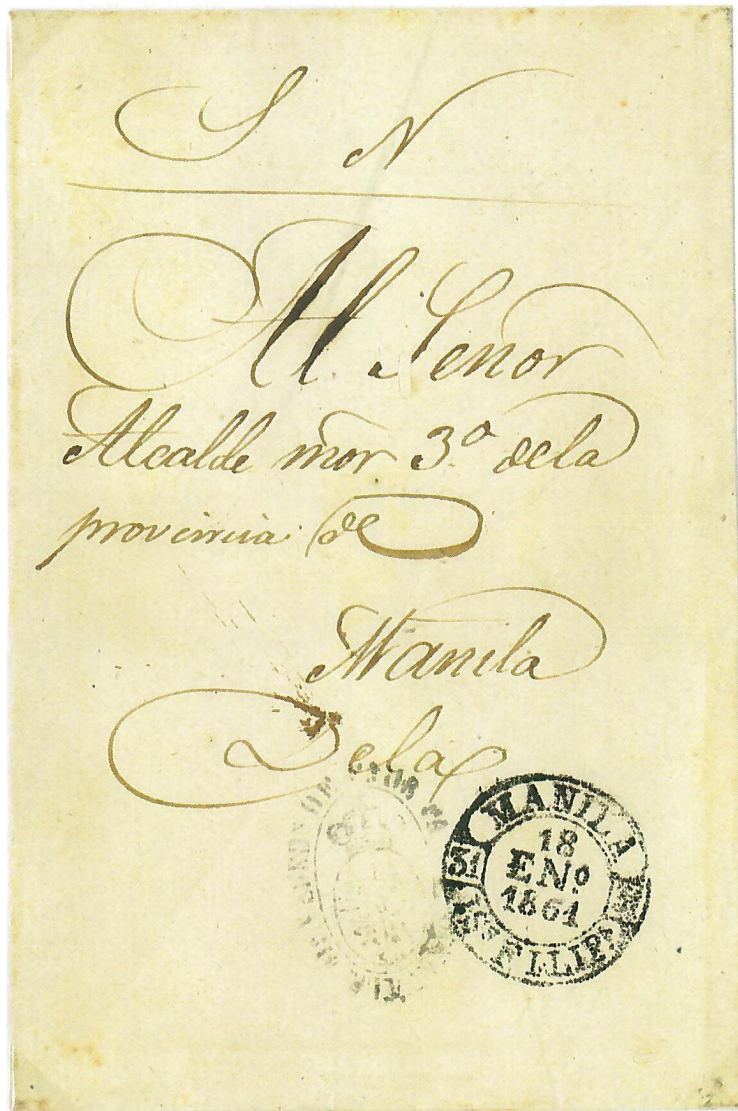 S N
Al Señor
Alcalde mor 3º dela
provincia de
Manila
Dela
MANILA
18
ENº
1861
ISS FILIPS